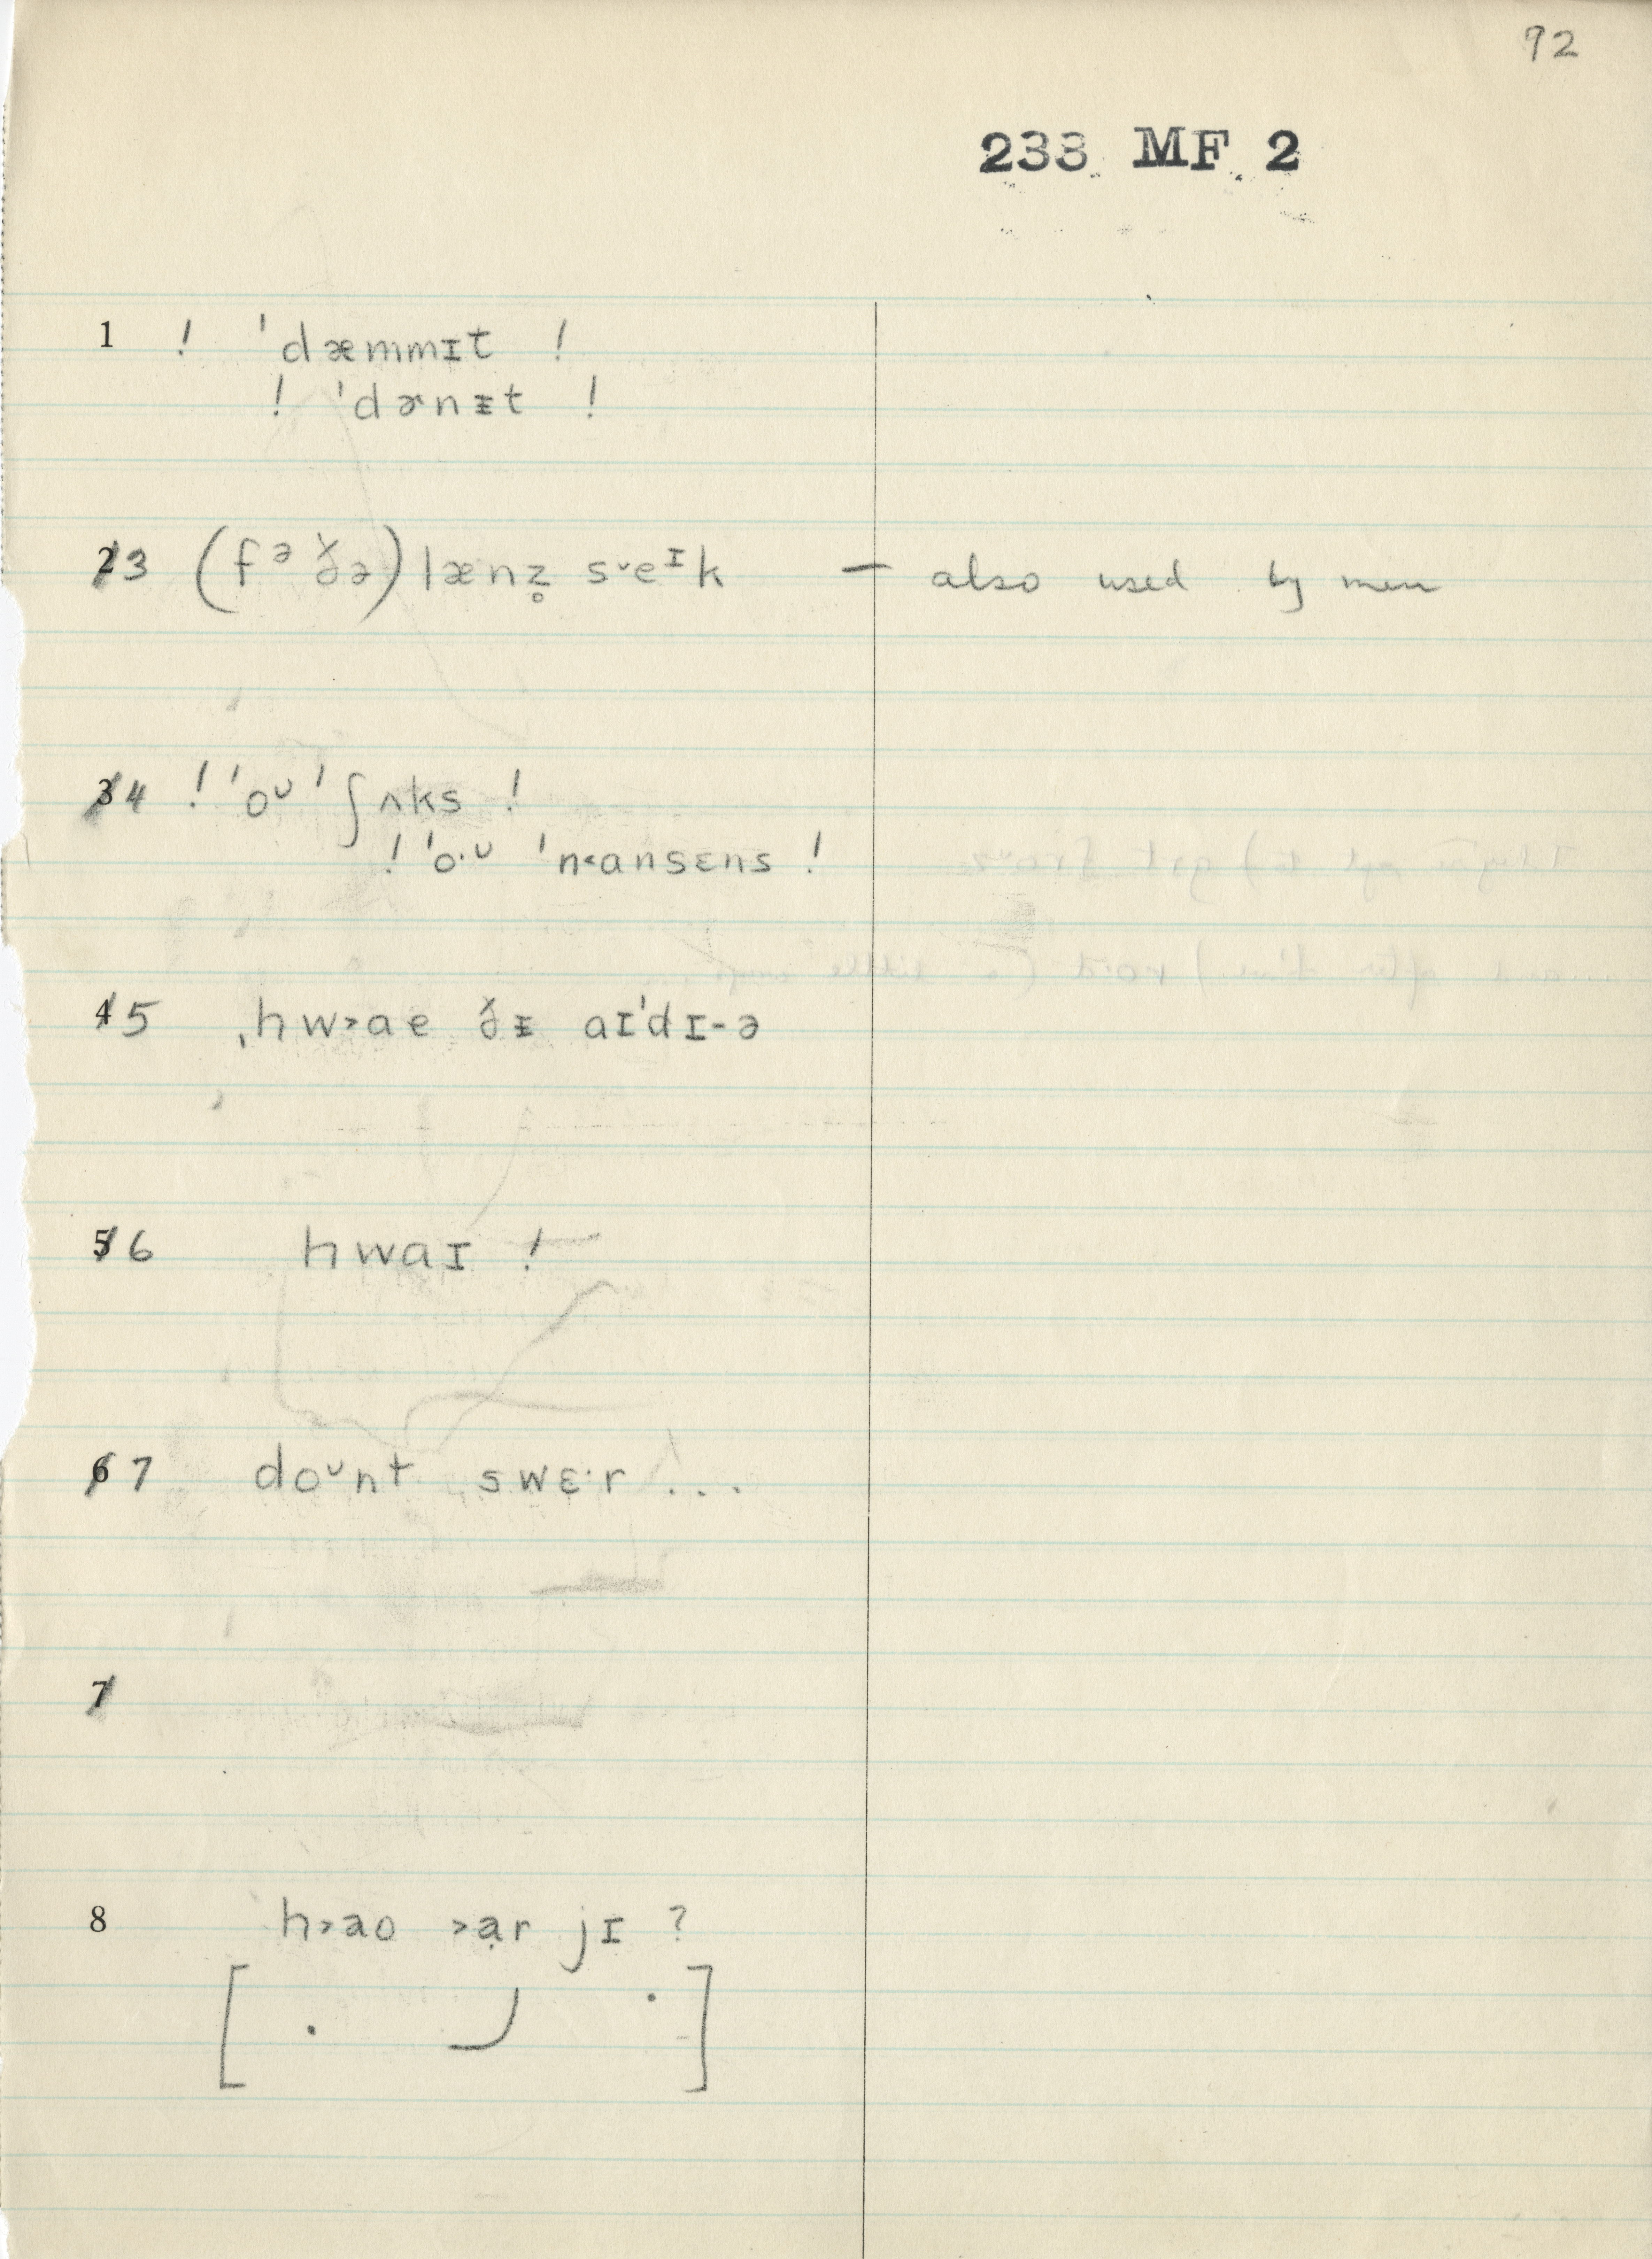 92
233 MF 2
1 ! ˈdæmmɪt !
! ˈdɚnᵻt !
23 (fᵊ ðə) lænz̥ s˅eᶦk — also used by men
34 ! ˈoᶷ ˈʃʌks !
! ˈo·ᶷ ˈn˂ansɛns !
45 ˌhw˃ae ðᵻ aɪˈdɪ-ə
56 hwaɪ !
67 doᶷnt swɛ·r ...
7
8 h˃ao ˃ạr jɪ ?